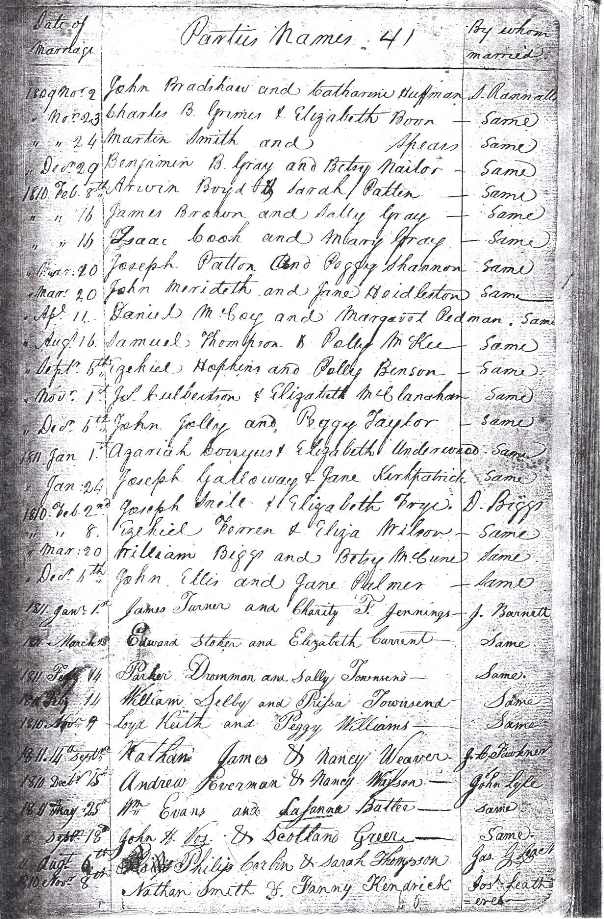 Date of Marriage Parties Names. 41 By whom married
1809 Nov. 2 John Bradshaw and Catharine Huffman S. Rannalls
" Nov. 23 Charles B. Grimes & Elizabeth Boon – Same
" " 24 Martin Smith and Spears Same
" Decr. 29 Benjamin B. Gray and Betsy Nailor – Same
1810 Feb. 8th Arwin Boyd & Sarah Patten – Same
" " 16 James Brown and Sally Gray – Same
" " 16 Isaac Cook and Mary Gray – Same
" Mar: 20 Joseph Patton And Peggy Shannon – Same
" Mar: 20 John Merideth and Jane Hoidleston Same
" Apl. 11 Daniel McCoy and Margaret Redman. Same
" Augt. 16 Samuel Thompson & Polly McKee – Same
" Sept. 6th Ezekiel Hopkins and Polly Benson – Same
" Nov. 1st Js. Culbertson & Elizabeth McClanahan Same
" Decr. 6th John Jolly and Peggy Taylor – Same
1811 Jan 1st Azariah & Elizabeth Underwood Same
" Jan: 24 Joseph Galloway & Jane Kirkpatrick Same
1810 Feb 2nd Joseph & Elizabeth Frye. D. Biggs
" " 8. Ezekiel Ferren & Eliza Wilson – Same
" Mar: 20 William Biggs and Betsy McCune Same
" Decr. 6th John Ellis and Jane Palmer – Same
1811 Jany. 1st James Turner and Charity F. Jennings – J. Barnett
1811 March 28 Edward Stoker and Elizabeth Current – Same
1811 Feby 14 Parker Drummon and Sally Townsend – Same.
Feby 14 William Selby and Prissa Townsend Same
1810 Nov. 9 Loyd Keith and Peggy Williams – Same
1811 4th Septbr Nathan James & Nancy Weaver
1810 Decbr 15 Andrew Roverman & Nancy – John Lyle
1811 May 25 Wm. Evans and Batter – Same
" Septr 18 John H. & Scotland Greer – Same.
" Augt 6th Philip Carlin & Sarah Thompson Jas.
1810 Novr. 8 Nathan Smith & Fanny Kendrick Jos. Leath
ers